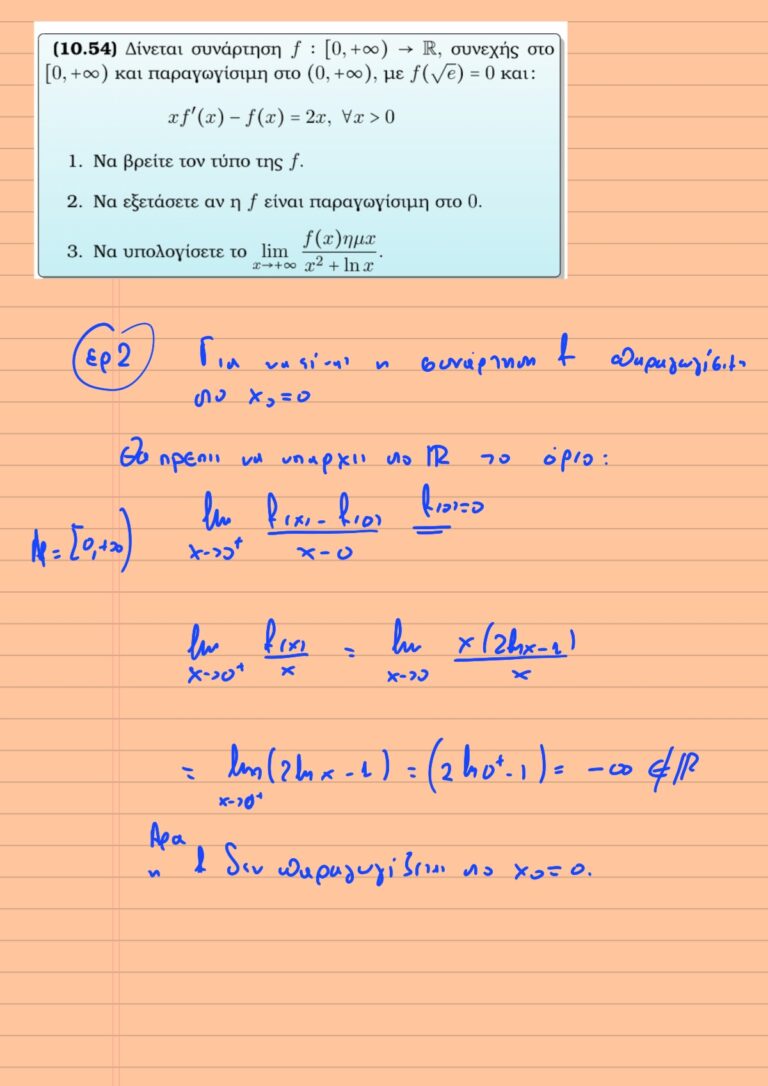 (10.54) Δίνεται συνάρτηση f : [0, +∞) → ℝ, συνεχής στο
[0, +∞) και παραγωγίσιμη στο (0, +∞), με f(√e) = 0 και:
xf′(x) − f(x) = 2x, ∀x > 0
1. Να βρείτε τον τύπο της f.
2. Να εξετάσετε αν η f είναι παραγωγίσιμη στο 0.
3. Να υπολογίσετε το lim x→+∞ f(x)ημx / (x² + ln x).
ερ2 Για να είναι η συνάρτηση f παραγωγίσιμη
στο x₀=0
Θα πρέπει να υπάρχει στο ℝ το όριο:
Af = [0,+∞) lim x→0⁺ (f(x) − f(0)) / (x−0) f(0)=0
lim x→0⁺ f(x)/x = lim x→0 x(2lnx−1)/x
= lim x→0⁺ (2lnx − 1) = (2ln0⁺−1) = −∞ ∉ ℝ
Άρα
η f δεν παραγωγίζεται στο x₀=0.